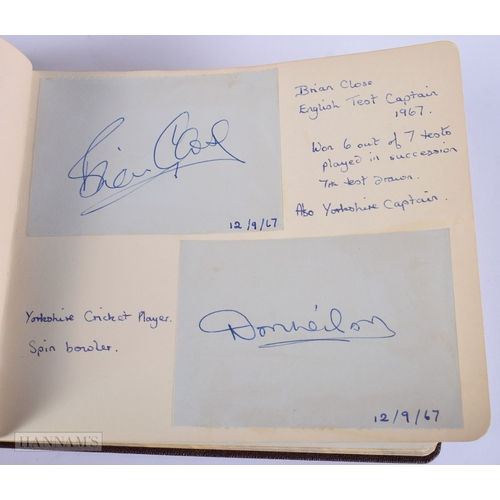 Brian Close
12/9/67
Brian Close
English Test Captain
1967.
Won 6 out of 7 tests
played in succession
7th test drawn.
Also Yorkshire Captain.
Yorkshire Cricket Player.
Spin bowler.
Don
12/9/67
HANNAM'S